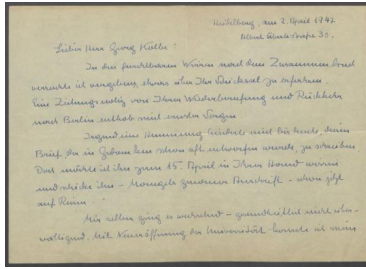 Heidelberg, am 2. April 1947
Albert Ueberle Straße 30.
Lieber Herr Georg Kolbe!
In den furchtbaren Wirren nach dem Zusammenbruch
versuchte ich vergebens etwas über Ihr Schicksal zu erfahren.
Eine Zeitungsnotiz von Ihrer Wiederberufung und Rückkehr
nach Berlin enthob mich mancher Sorgen
Irgend eine Hemmung hinderte mich bis heute, diesen
Brief, der in Gedanken schon oft entworfen wurde, zu schreiben
Doch möchte ich ihn zum 15. April in Ihrer Hand wissen
und schicke ihn - Mangels genauer Anschrift - schon jetzt
auf Reise
Mir selber ging es wechselnd - gesundheitlich nicht über-
wältigend. Mit Neueröffnung der Universität konnte ich mein